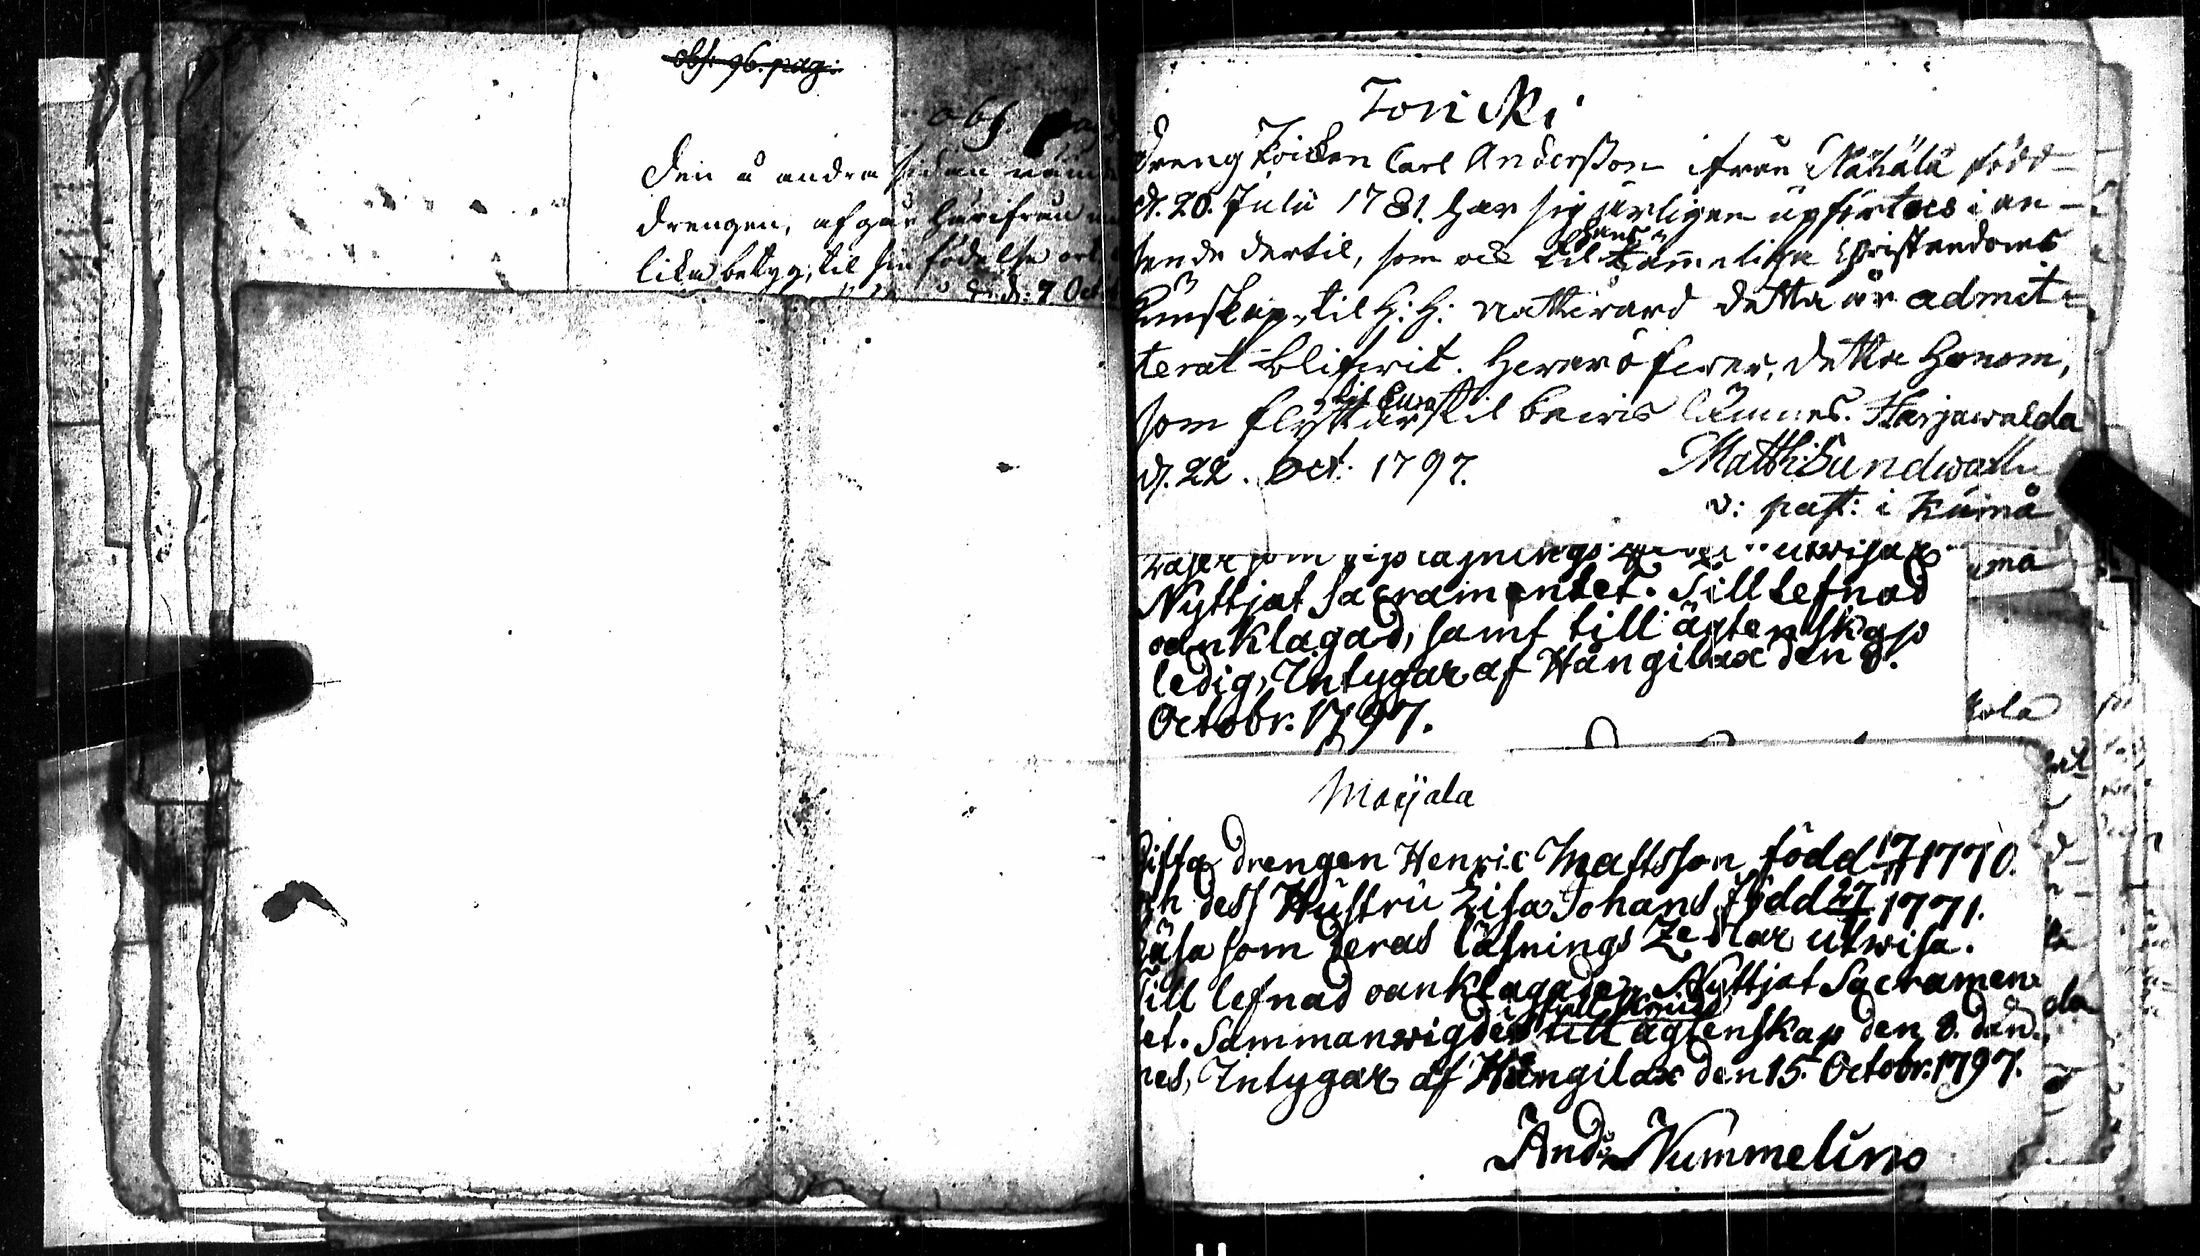 obs: 96. pag:
obs pag
Den å andra sidan nämde
drengen, afgår härifrån med
lika betyg, til sin födelse ort
d: 9 Oct
Toricki
Dreng Poicken Carl Andersson ifrån Näkälä född
d. 20. Julii 1781. har sig ärligen upfördt i an-
seende dertil, som ock til hans tämmeliga Christendoms
kunskap, til H: H: Nattward detta år admit-
terat blifwit. Hwaröfwer, detta honom,
som flyttar til Eura til bewis lämnes. Harjawalda
d. 22. Oct. 1797.
Matth: Sundwall
v: past: i Kumå
läser som dess läsnings utwisar
Nyttjat sacramentet. Till lefnad
oanklagad, samt till ägtenskap
ledig, Intygar af Hångilax den 8.
Octobr. 1797.
må
kola
Marjala
Dissa drengen Henric Mattsson född 17 1770.
och dess Hustru Lisa Johans född 27 1771.
Läsa som deras läsnings Zedlar utwisa.
Till lefnad oanklagade, Nyttjat Sacramen
tet. Sammanwigde till ägtenskap den 8. dan
nes, Intygar af Hångilax den 15. Octobr. 1797.
And: Nummelin